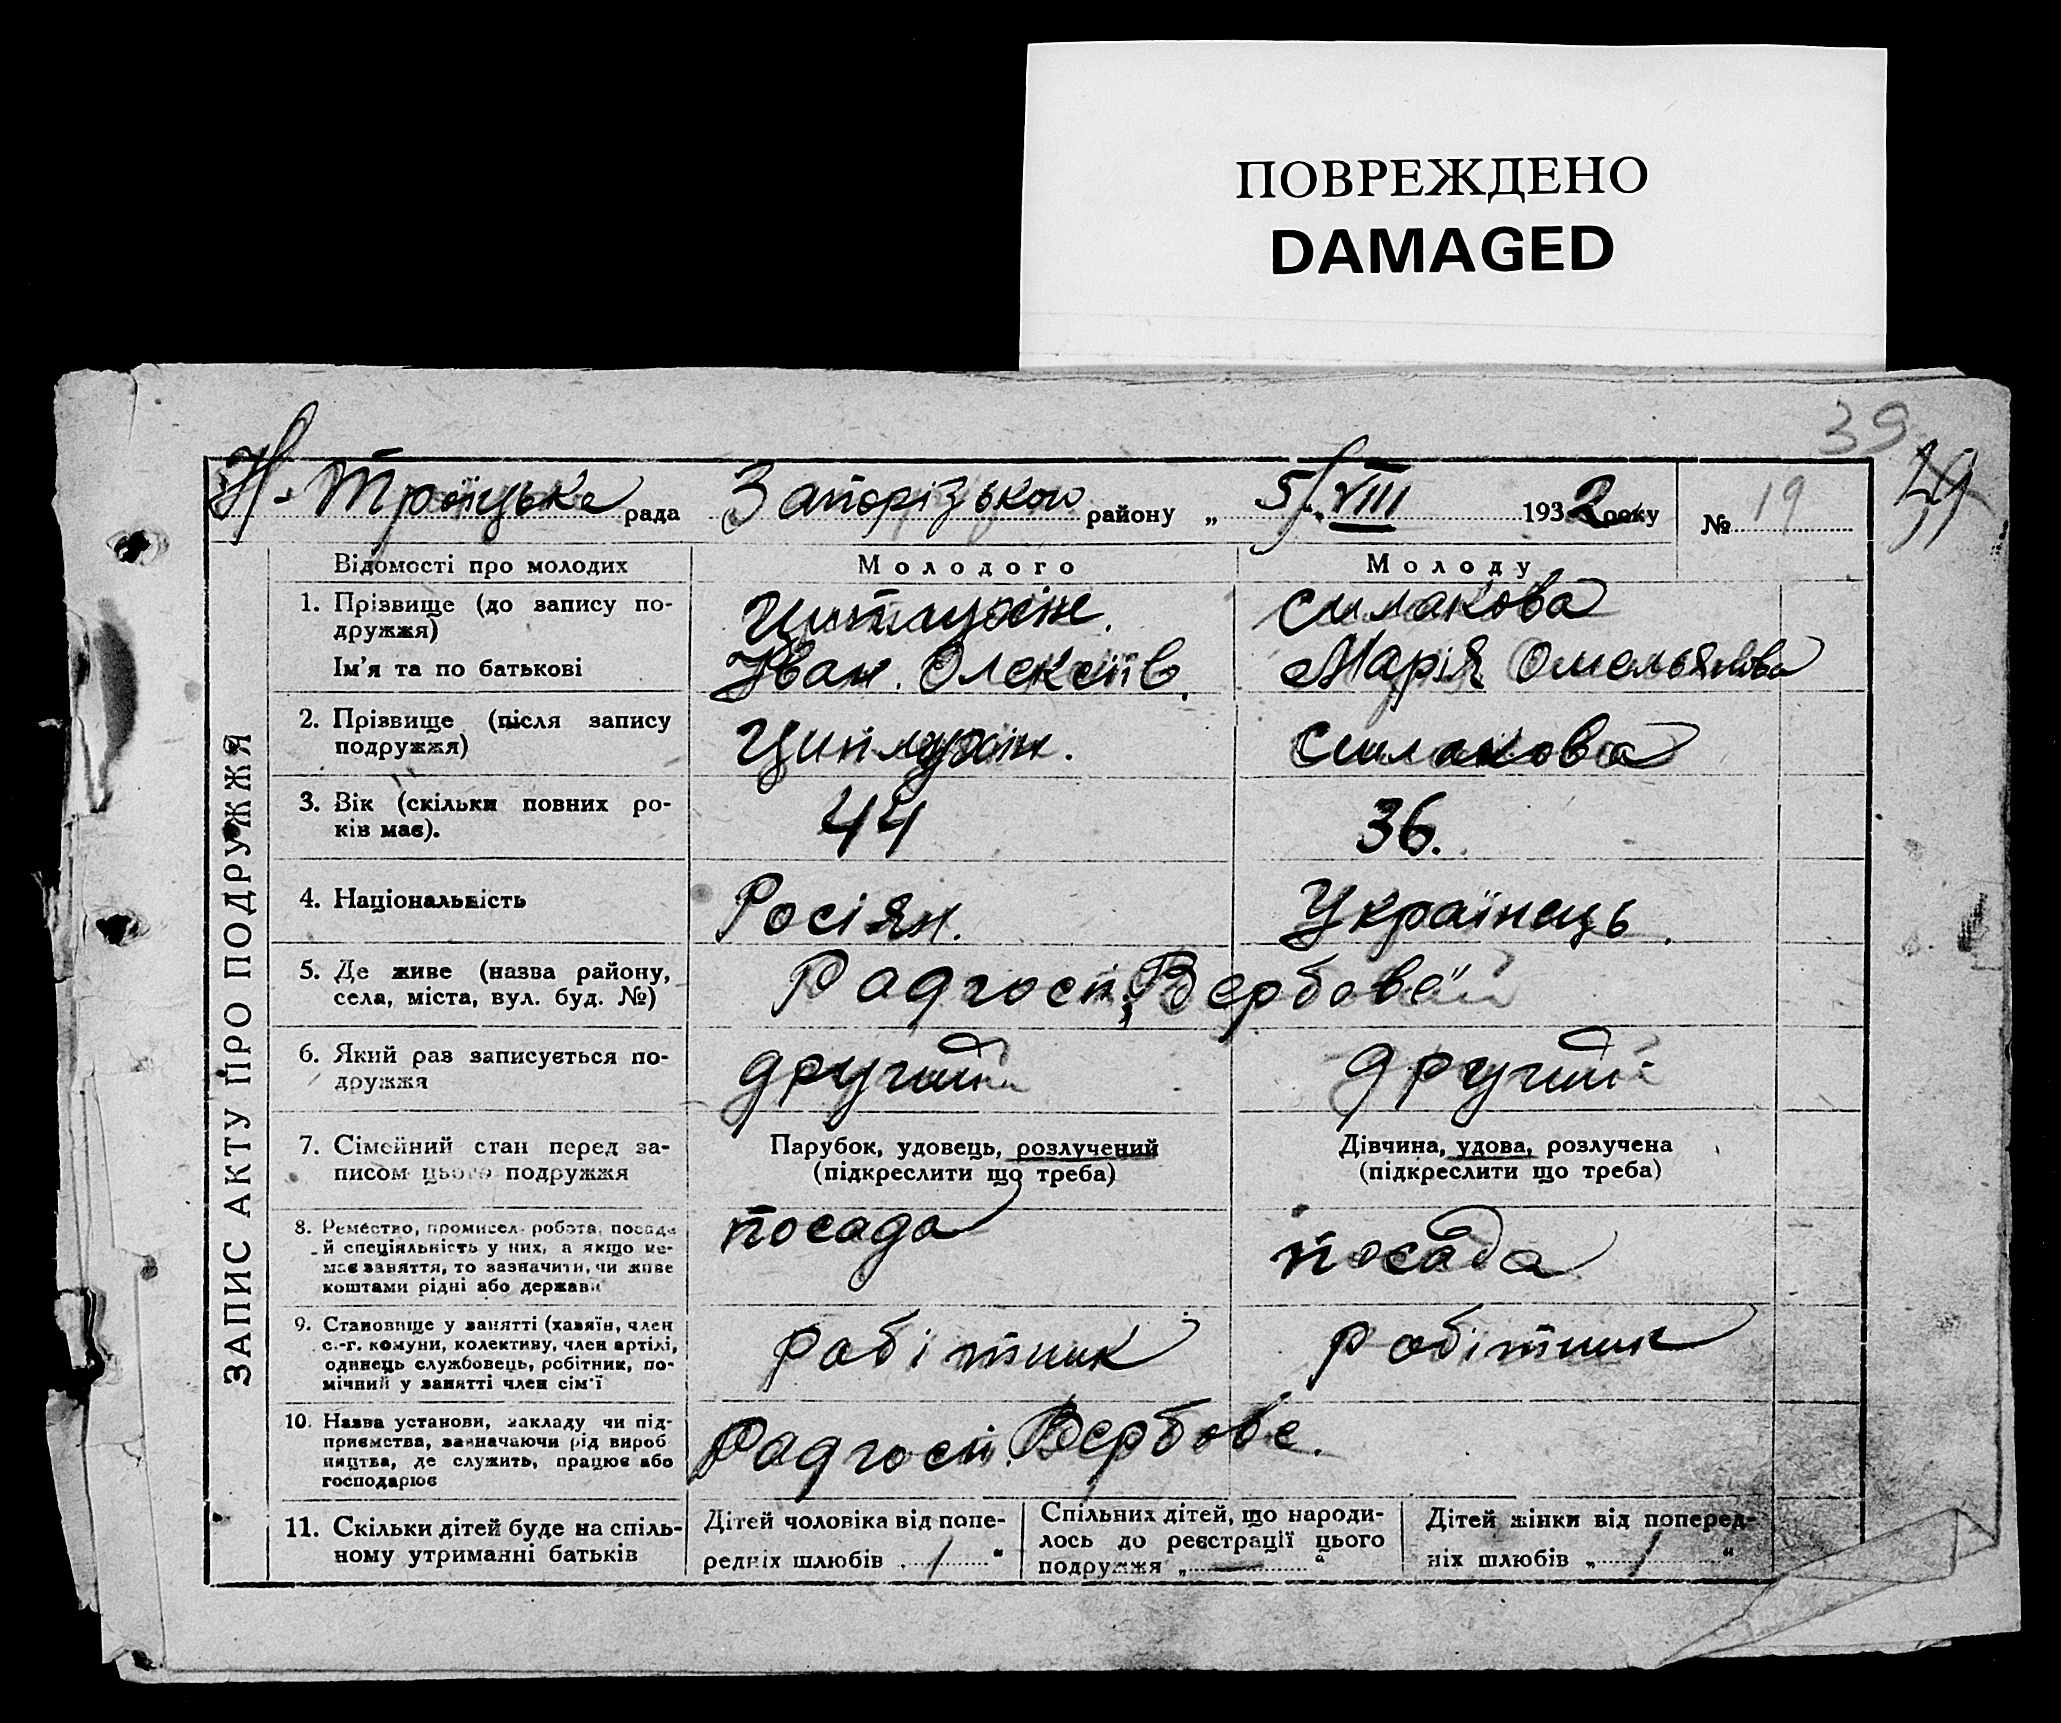 ПОВРЕЖДЕНО
DAMAGED
39
Н-Троїцьке рада Запорізького району „ 5/VIII 1932 року № 19
ЗАПИС АКТУ ПРО ПОДРУЖЖЯ
Відомості про молодих
Молодого
Молоду
1. Прізвище (до запису по-
дружжя)
Силакова
Ім'я та по батькові
Іван. Олексіїв.
Марія Омельянова
2. Прізвище (після запису
подружжя)
Силакова
3. Вік (скільки повних ро-
ків має).
44
36.
4. Національність
Росіян.
Українець.
5. Де живе (назва району,
села, міста, вул. буд. №)
Радгосп. „Вербове"
6. Який раз записується по-
дружжя
другий
другий
7. Сімейний стан перед за-
писом цього подружжя
Парубок, удовець, розлучений
(підкреслити що треба)
Дівчина, удова, розлучена
(підкреслити що треба)
8. Ремество, промисел. робота, посада
й спеціяльність у них, а якщо не-
має заняття, то зазначити, чи живе
коштами рідні або держави
посада
посада
9. Становище у занятті (хазяїн, член
с.-г. комуни, колективу, член артілі,
одинець службовець, робітник, по-
мічний у занятті член сім'ї
робітник
робітник
10. Назва установи, закладу чи під-
приємства, зазначаючи рід вироб
ництва, де служить, працює або
господарює
Радгосп. Вербове.
11. Скільки дітей буде на спіль-
ному утриманні батьків
Дітей чоловіка від попе-
редніх шлюбів . 1 "
Спільних дітей, що народи-
лось до реєстрації цього
подружжя „ — "
Дітей жінки від поперед-
ніх шлюбів „ 1 "